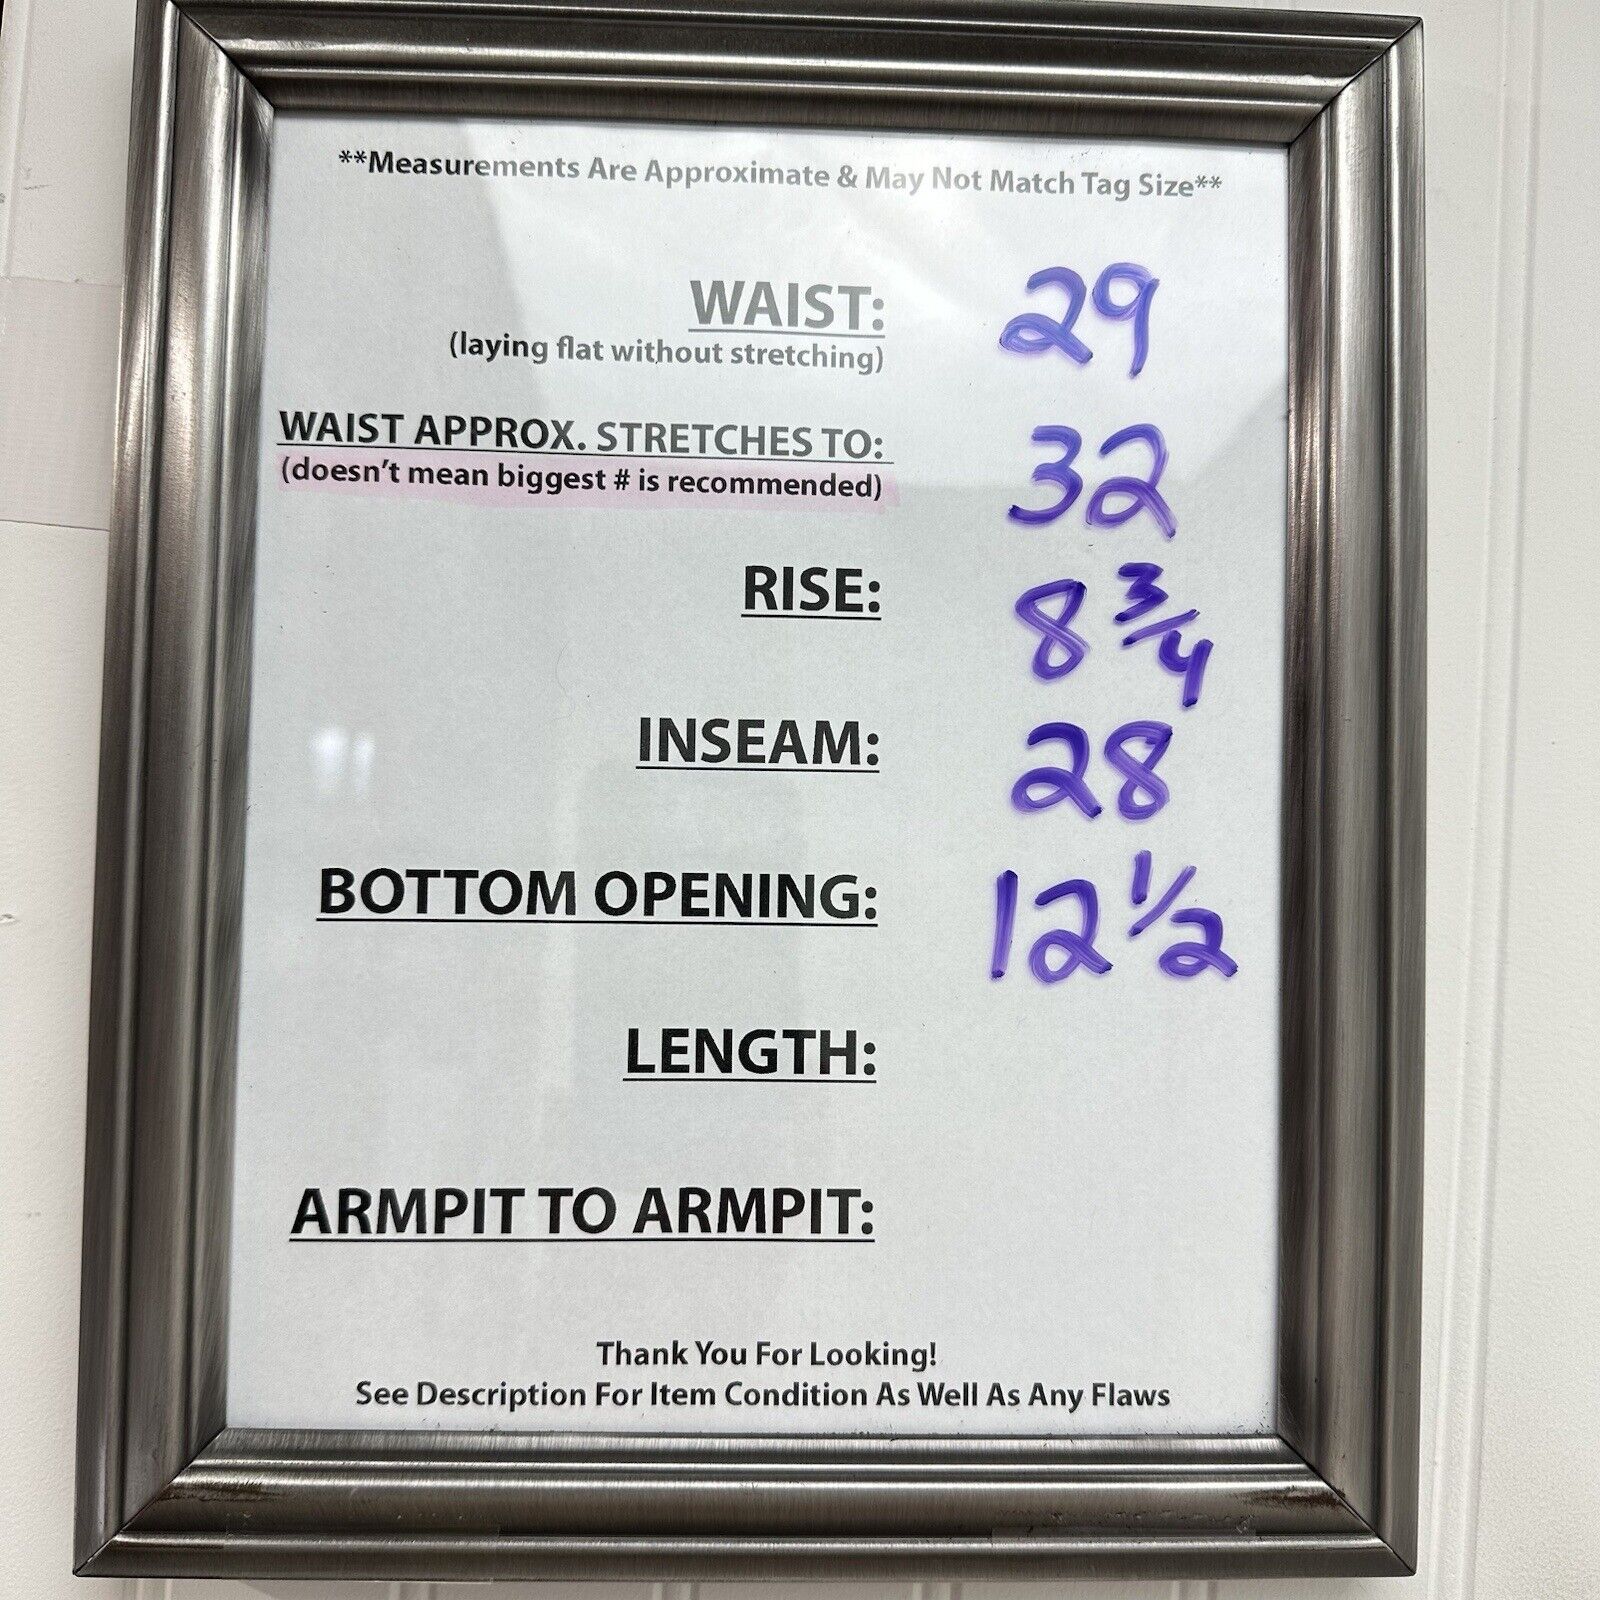 **Measurements Are Approximate & May Not Match Tag Size**
WAIST: 29
(laying flat without stretching)
WAIST APPROX. STRETCHES TO: 32
(doesn't mean biggest # is recommended)
RISE: 8 3/4
INSEAM: 28
BOTTOM OPENING: 12 1/2
LENGTH:
ARMPIT TO ARMPIT:
Thank You For Looking!
See Description For Item Condition As Well As Any Flaws